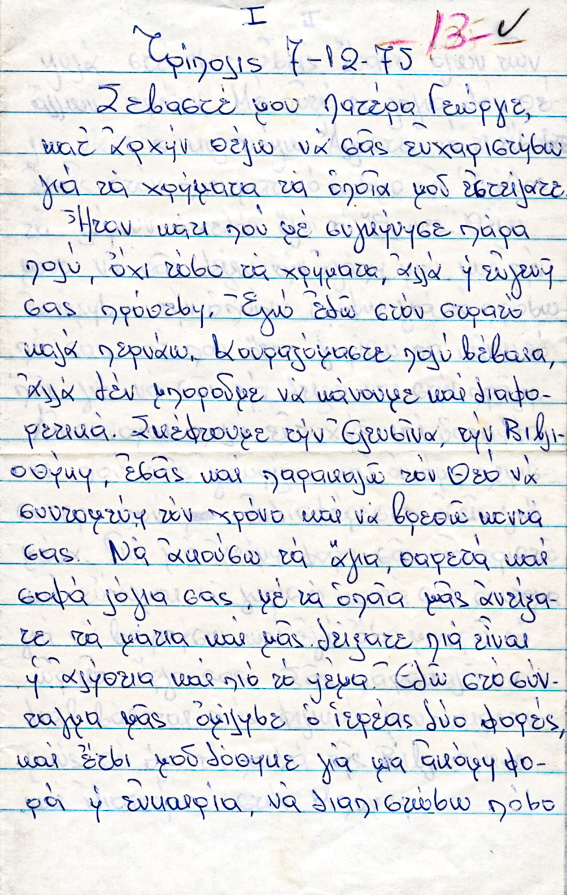 I
-13- ✓
Τρίπολις 7-12-75
Σεβαστέ μου πατέρα Γεώργιε,
κατ' ἀρχήν θέλω νά σᾶς εὐχαριστήσω
γιά τά χρήματα τά ὁποῖα μοῦ ἐστείλατε.
Ἦταν κάτι πού μέ συγκίνησε πάρα
πολύ, ὄχι τόσο τά χρήματα, ἀλλά ἡ εὐγενή
σας πρόσεβη. Ἐγώ ἐδῶ στόν στρατό
καλά περνάω. Κουραζόμαστε πολύ βέβαια,
ἀλλά δέν μποροῦμε νά κάνουμε καί διαφο-
ρετικά. Σκέφτουμε τήν Ἐλευσῖνα, τήν Βιβλι-
οθήκη, ἐσᾶς καί παρακαλῶ τόν Θεό νά
συντομεύη τόν χρόνο καί νά βρεθῶ κοντά
σας. Νά ἀκούσω τά ἅγια, θαρετά καί
σοφά λόγια σας, μέ τά ὁποῖα μᾶς ἀνοίξα-
τε τά μάτια καί μᾶς δείξατε πιά εἶναι
ἡ ἀλήθεια καί πιό τό ψέμα. Ἐδῶ στό σύν-
ταγμα μᾶς ὁμίλησε ὁ ἱερέας δύο φορές,
καί ἔτσι μοῦ δόθηκε γιά μιά ἀκόμη φο-
ρά ἡ εὐκαιρία, νά διαπιστώσω πόσο